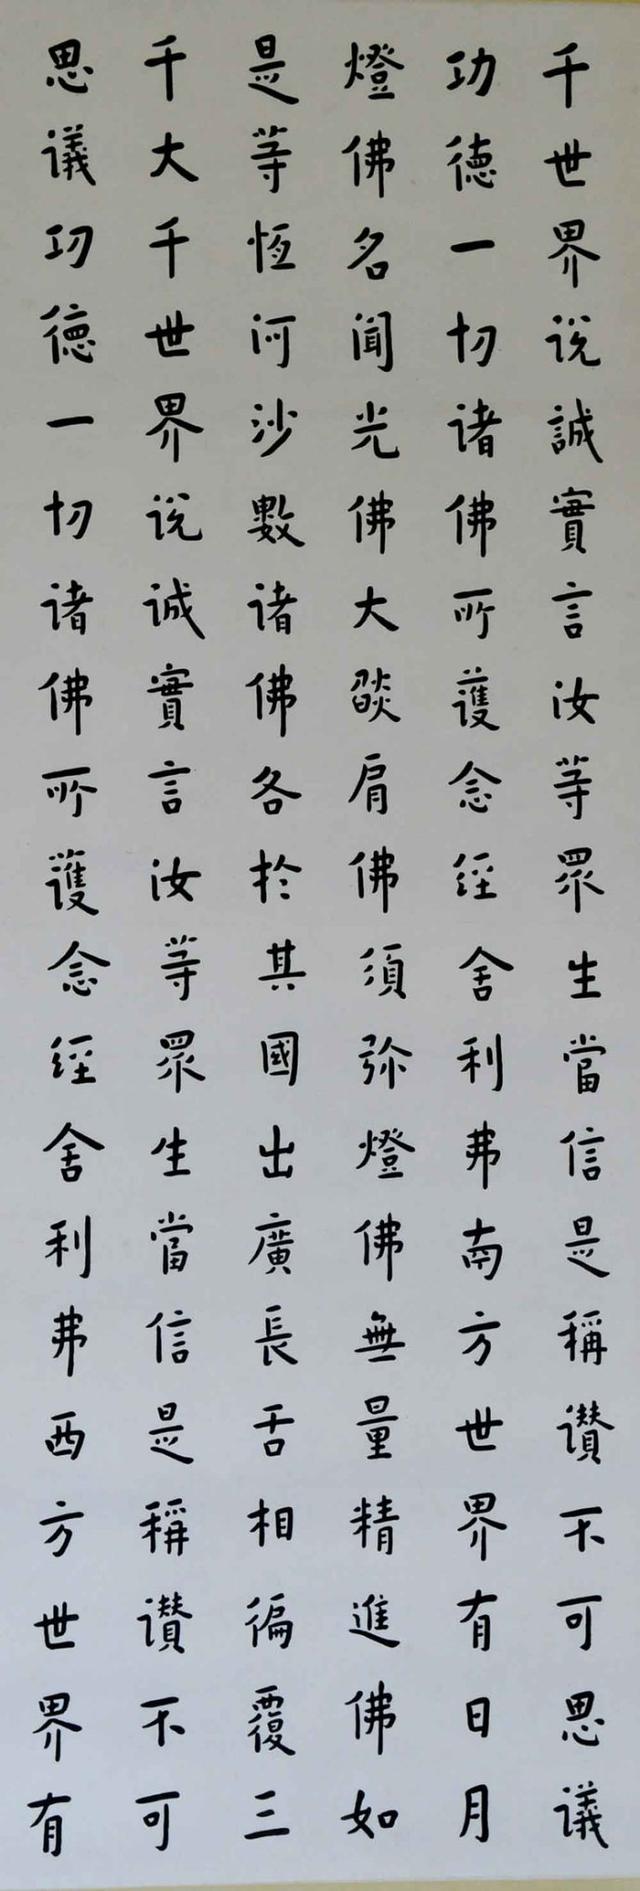 千世界说誠實言汝等眾生當信是稱讃不可思議
功德一切诸佛所護念經舍利弗南方世界有日月
燈佛名聞光佛大燄肩佛須弥燈佛無量精進佛如
是等恆河沙數诸佛各於其國出廣長舌相徧覆三
千大千世界说诚實言汝等眾生當信是稱讃不可
思議功德一切诸佛所護念經舍利弗西方世界有